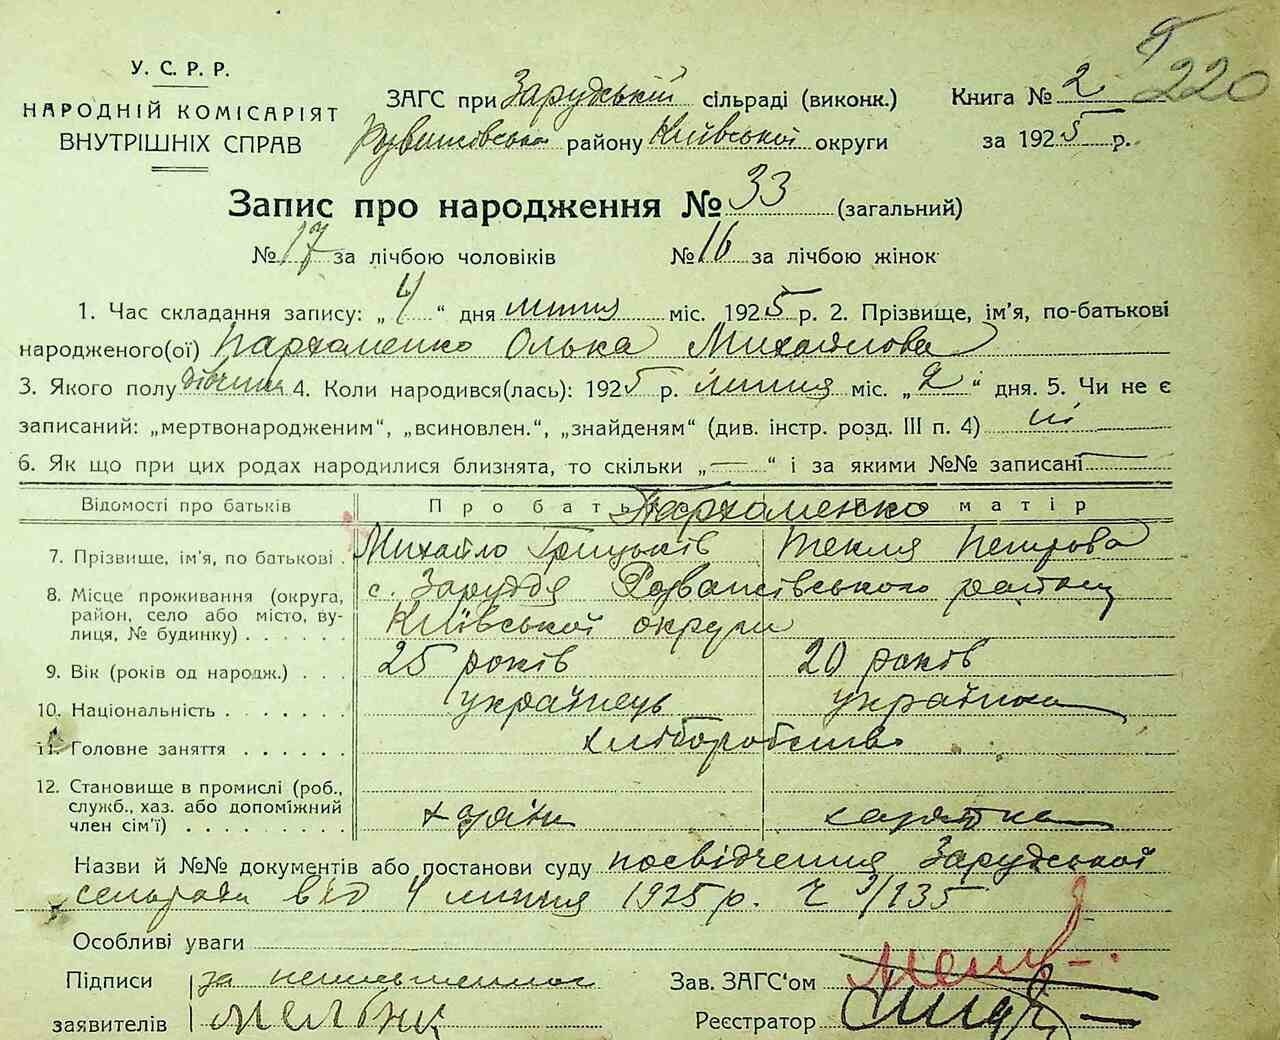 220
У. С. Р. Р.
НАРОДНІЙ КОМІСАРІЯТ
ВНУТРІШНІХ СПРАВ
ЗАГС при Зарудській сільраді (виконк.)
Розважівського району Київської округи
Книга № 2
за 1925 р.
Запис про народження № 33 (загальний)
№ 17 за лічбою чоловіків № 16 за лічбою жінок
1. Час складання запису: „4“ дня липня міс. 1925 р. 2. Прізвище, ім'я, по-батькові
народженого(ої) Пархоменко Олька Михайлова
3. Якого полу дівчина 4. Коли народився(лась): 1925 р. липня міс. „2“ дня. 5. Чи не є
записаний: „мертвонародженим“, „всиновлен.“, „знайденям“ (див. інстр. розд. III п. 4) ні
6. Як що при цих родах народилися близнята, то скільки „—“ і за якими №№ записані
Відомості про батьків Про батька Про матір
Пархоменко
7. Прізвище, ім'я, по батькові . Михайло Грицьків Текля Петрова
8. Місце проживання (округа, район, село або місто, вулиця, № будинку) . . . . . . с. Заруддя Розважівського району
Київської округи
9. Вік (років од народж.) . . . 25 років 20 років
10. Національність . . . . . . . українець українка
11. Головне заняття . . . . . . хліборобство
12. Становище в промислі (роб., служб., хаз. або допоміжний член сім'ї) . . . . . . . . . хазяїн хазяйка
Назви й №№ документів або постанови суду посвідчення Зарудської
сельради від 4 липня 1925 р. Ч 9/135
Особливі уваги
Підписи
заявителів
за неписьменного
Мельник
Зав. ЗАГС'ом
Реєстратор